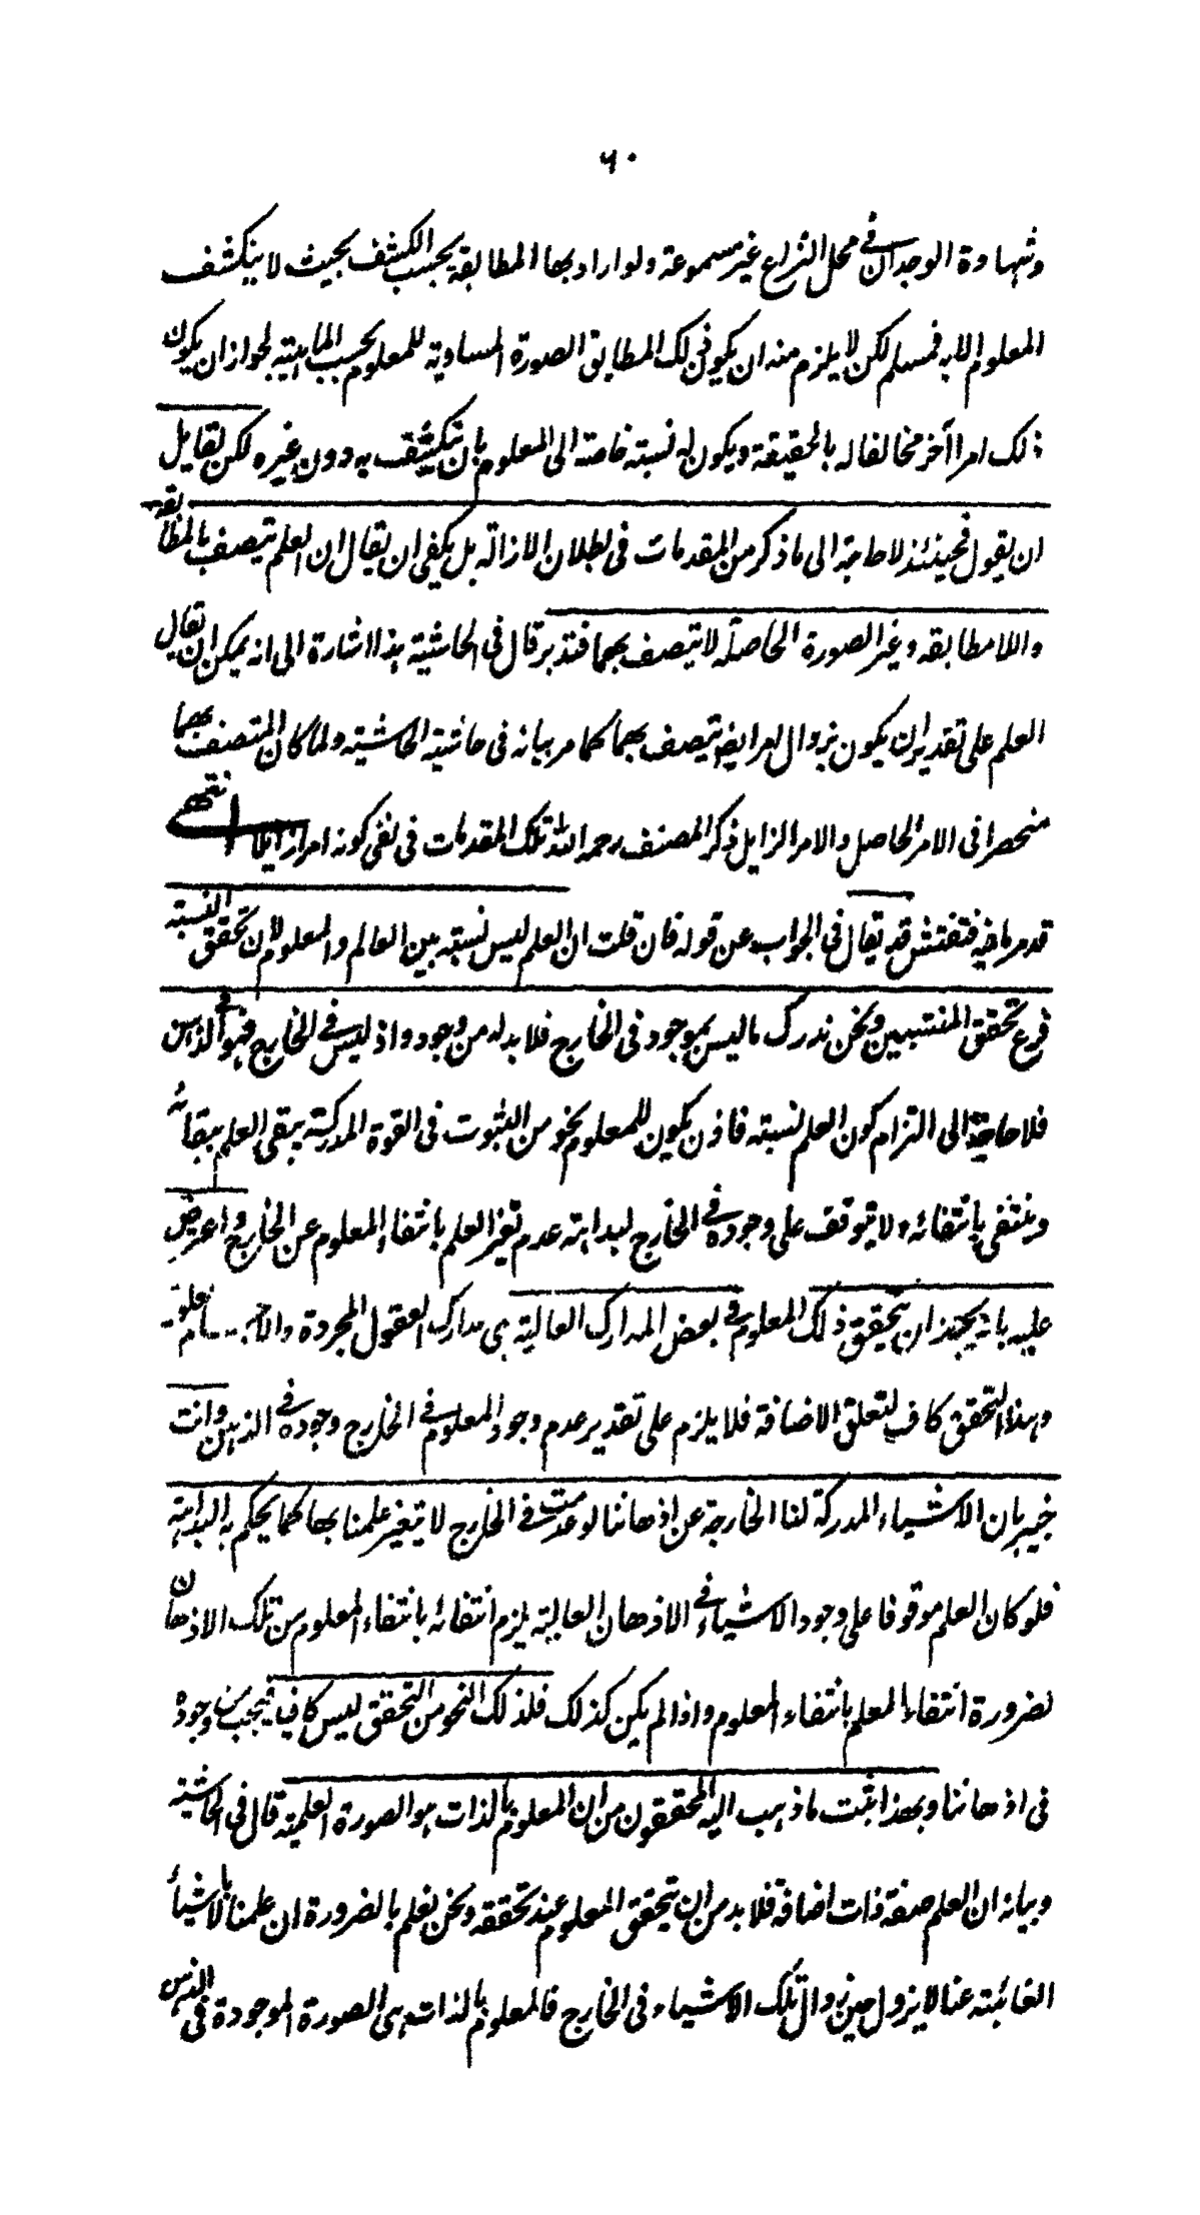 ٦٠
وشهادة الوجدان في محل النزاع غير مسموعة ولو اراد بها المطابقة بحسب الكشف بحيث لا ينكشف
المعلوم الا به فمسلم لكن لا يلزم منه ان يكون ذلك المطابق الصورة المساوية للمعلوم بحسب الماهية لجواز ان يكون
ذلك امرا آخر مخالفا له بالحقيقة ويكون له نسبة خاصة الى المعلوم بان تنكشف به دون غيره لكن لقايل
ان يقول فحينئذ لا حاجة الى ما ذكر من المقدمات فى بطلان الازالة بل يكفى ان يقال ان العلم يتصف بالمطابقة
واللامطابقة وغير الصورة الحاصلة لا يتصف بهما فتدبر قال فى الحاشية هذا اشارة الى انه يمكن ان يقال
العلم على تقدير ان يكون بزوال امر ايضا يتصف بهما كما مر بيانه فى حاشية الحاشية ولما كان المتصف بهما
منحصرا فى الامر الحاصل والامر الزايل ذكر المصنف رحمه الله تلك المقدمات فى نفى كونه امرا زايلا انتهى
قد مر ما فيه فتفتش قد يقال فى الجواب عن قوله فان قلت ان العلم ليس نسبة بين العالم والمعلوم لان تحقق النسبة
فرع تحقق المنتسبين ونحن ندرك ما ليس بموجود فى الخارج فلا بد له من وجود واذ ليس في الخارج فهو في الذهن
فلا حاجة الى التزام كون العلم نسبة فاذن يكون للمعلوم نحو من الثبوت فى القوة المدركة يبقى العلم ببقائه
وينتفى بانتفائه ولا يتوقف على وجوده في الخارج لبداهة عدم تغير العلم بانتفاء المعلوم عن الخارج واعترض
عليه بانه يجوز ان يتحقق ذلك المعلوم في بعض المدارك العالية هى مدارك العقول المجردة والاجسام
وهذا التحقق كاف لتعلق الاضافة فلا يلزم على تقدير عدم وجود المعلوم في الخارج وجوده في الذهن وانت
خبير بان الاشياء المدركة لنا الخارجة عن اذهاننا لو عدمت في الخارج لا يتغير علمنا بها كما يحكم به البداهة
فلو كان العلم موقوفا على وجود الاشياء في الاذهان العالية يلزم انتفائه بانتفاء المعلوم من تلك الاذهان
لضرورة انتفاء العلم بانتفاء المعلوم واذا لم يكن كذلك فلذلك النحو من التحقق ليس كاف فيجب من وجوده
فى اذهاننا وبهذا ثبت ما ذهب اليه المحققون من ان المعلوم بالذات هو الصورة العلمية قال فى الحاشية
وبيانه ان العلم صفة ذات اضافة فلا بد من ان يتحقق المعلوم عند تحققه ونحن نعلم بالضرورة ان علمنا بالاشياء
الغائبة عنا لا يزول حين زوال تلك الاشياء فى الخارج فالمعلوم بالذات هى الصورة الموجودة فى الذهن